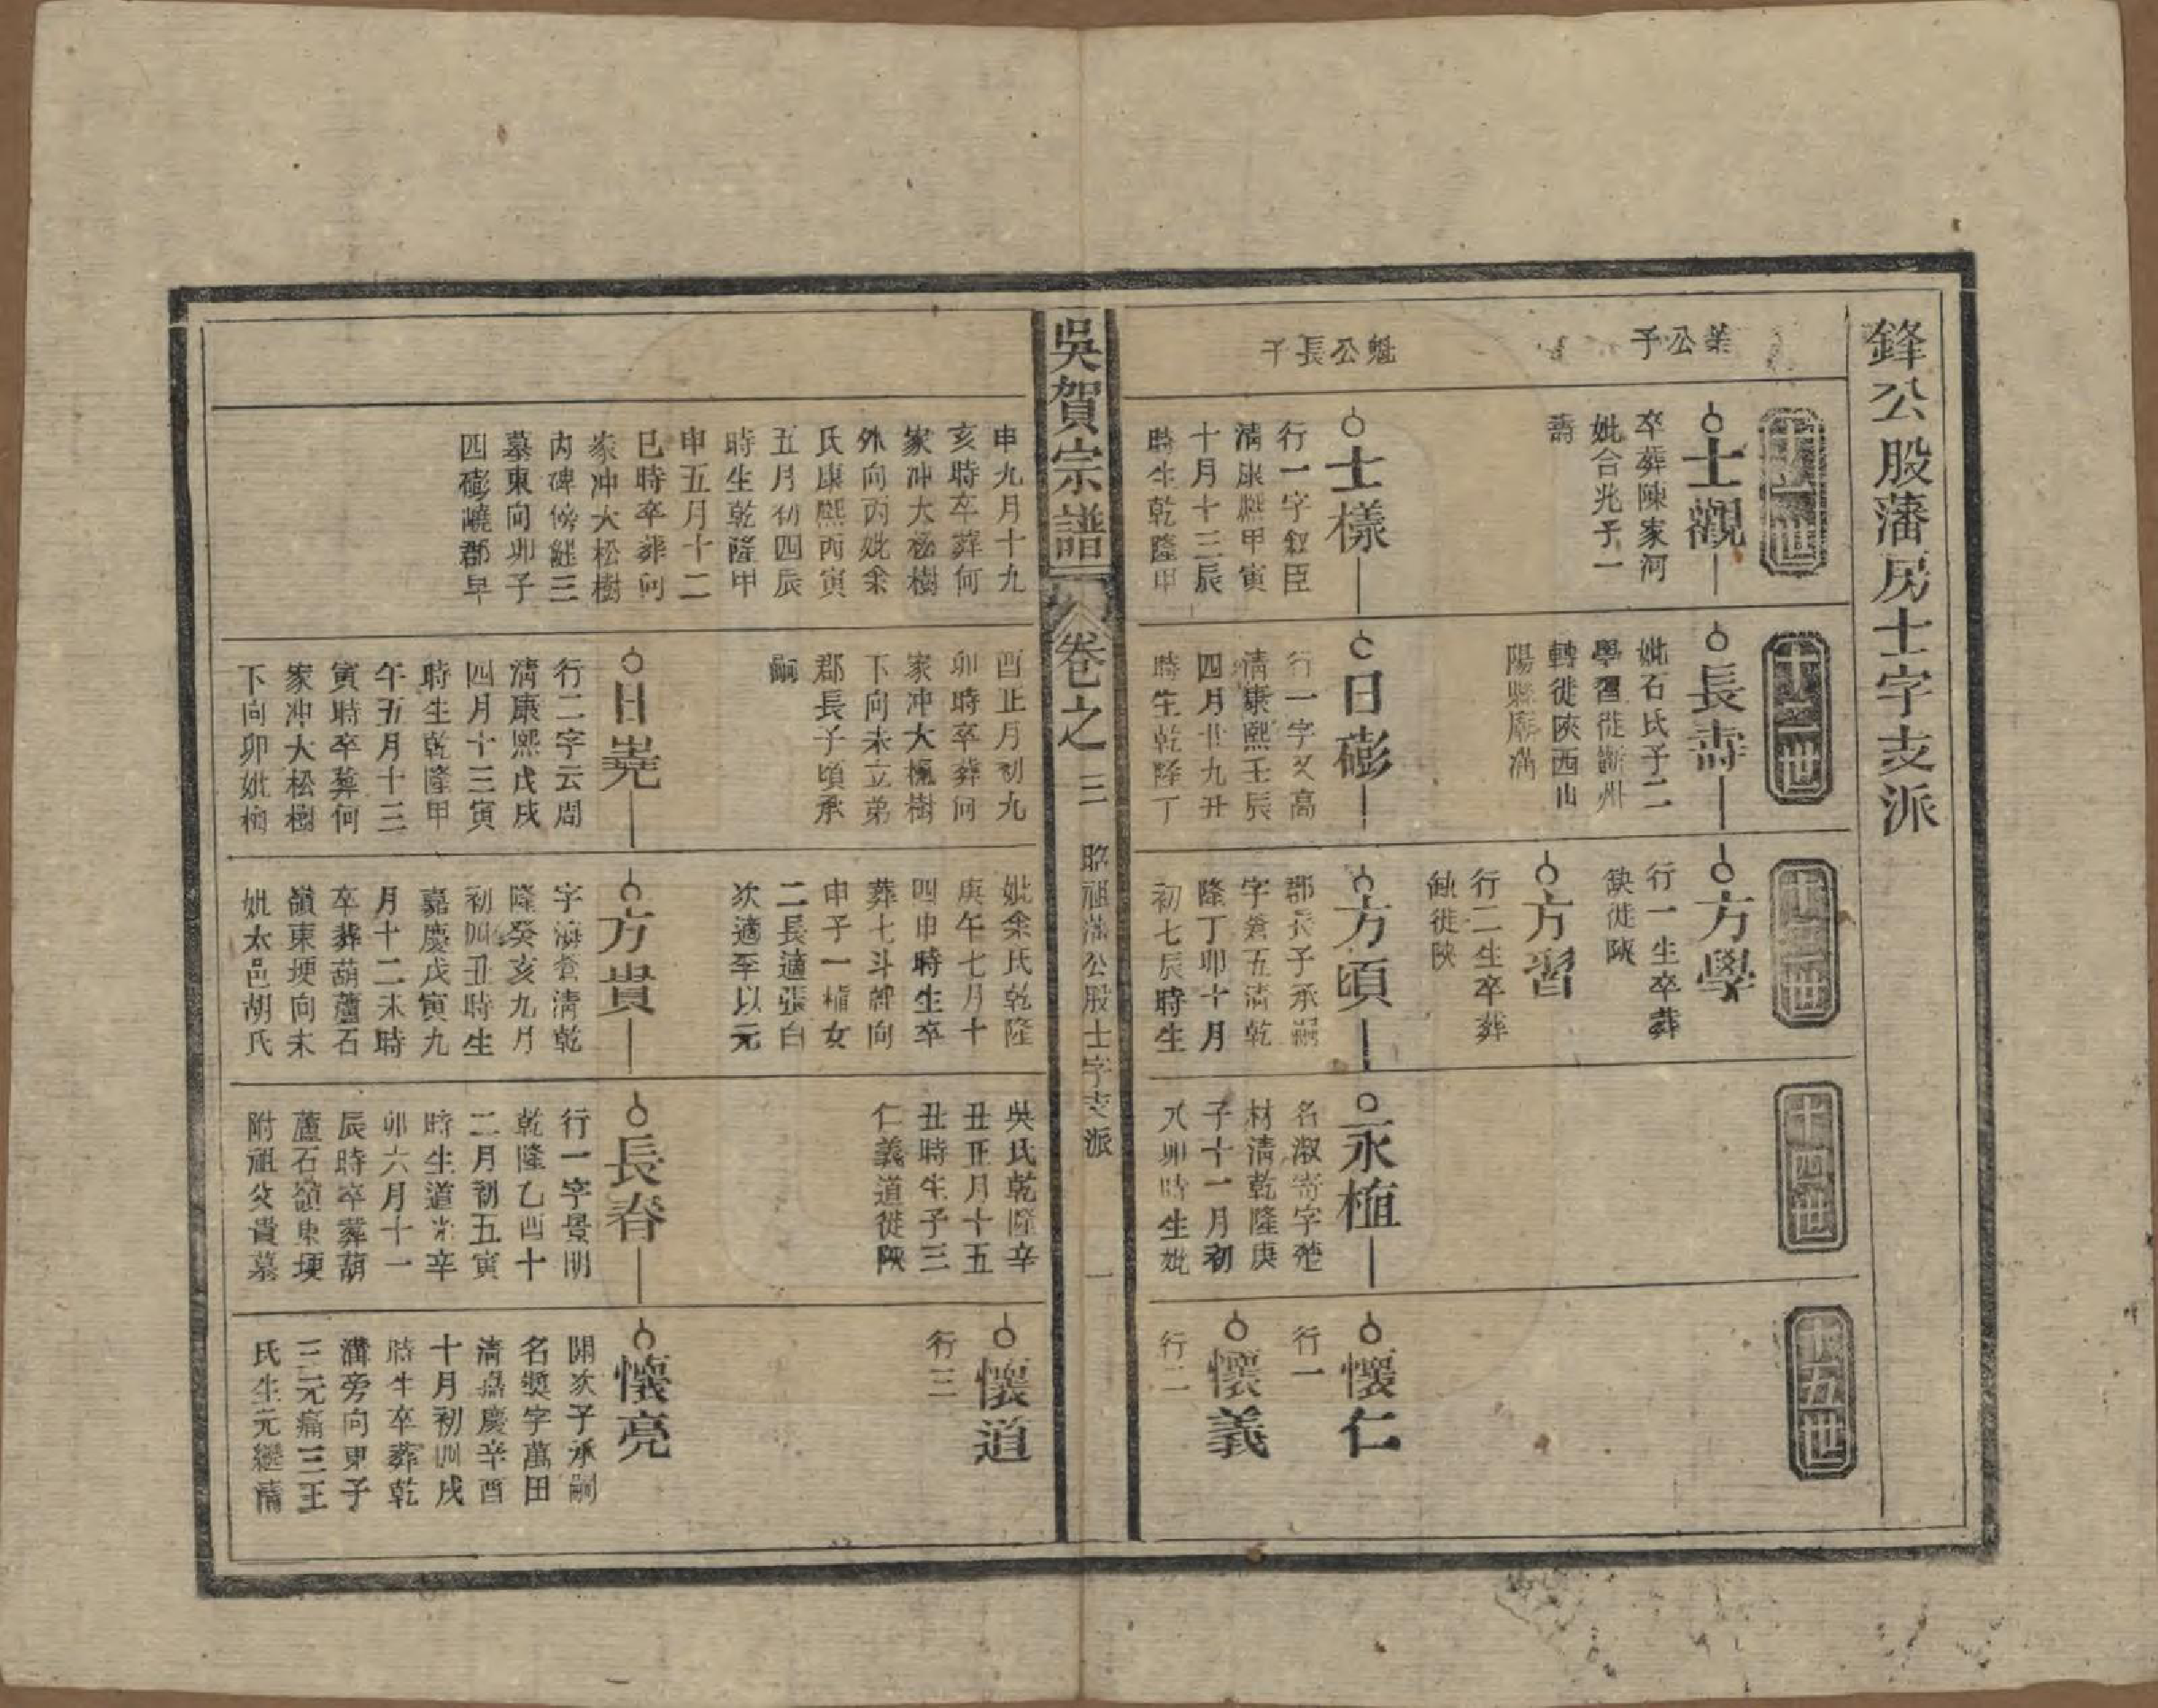 鋒公股藩房士字支派
公子
魁公長子
十一世
士觀
卒葬陳家河
妣合兆子一
壽
士樣
行一字叙臣
清康熙甲寅
十月十三辰
時生乾隆甲
申九月十九
亥時卒葬何
家冲大松樹
外向丙妣余
氏康熙丙寅
五月初四辰
時生乾隆甲
申五月十二
巳時卒葬何
家冲大松樹
內碑傍組三
墓東向卯子
四磅嶢郡早
十二世
長壽
妣石氏子二
學習徙蘄州
轉徙陝西山
陽縣廟溝
日磅
行一字文高
清康熙壬辰
四月廿九丑
時生乾隆丁
酉正月初九
卯時卒葬何
家冲大楓樹
下向未立弟
郡長子頃承
嗣
日嶢
行二字云周
清康熙戊戌
四月十三寅
時生乾隆甲
午五月十三
寅時卒葬何
家冲大松樹
下向卯妣柏
十三世
方學
行一生卒葬
缺徙陝
方習
行二生卒葬
缺徙陝
方頃
郡長子承嗣
字倉五清乾
隆丁卯十月
初七辰時生
妣余氏乾隆
庚午七月十
四申時生卒
葬七斗衅向
申子一植女
二長適張白
次適李以元
方貴
字海倉清乾
隆癸亥九月
初四丑時生
嘉慶戊寅九
月十二未時
卒葬葫蘆石
嶺東埂向未
妣太邑胡氏
十四世
永植
名淑寄字楚
材清乾隆庚
子十一月初
八卯時生妣
吳氏乾隆辛
丑正月十五
丑時生子三
仁義道徙陝
長春
行一字景明
乾隆乙酉十
二月初五寅
時生道光辛
卯六月十一
辰時卒葬葫
蘆石嶺東埂
附祖父貴墓
十五世
懷仁
行一
懷義
行二
懷道
行三
懷亮
開次子承嗣
名奬字萬田
清嘉慶辛酉
十月初四戌
時生卒葬乾
溝旁向東子
三元痛三王
氏生元繼清
吳賀宗譜
卷之三
昭祖藩公股士字支派
一